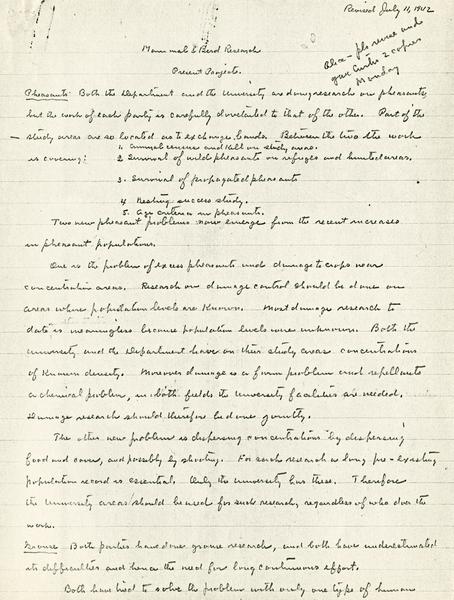 Revised July 11, 1942
Alice - pls revise and
give Curtis 2 copies
Monday
Mammal & Bird Research
Present Projects.
Pheasants: Both the Department and the University are doing research on pheasants,
but the work of each party is carefully dovetailed to that of the other. Part of the
study areas are so located as to exchange bands. Between the two the work
is covering:
1. Annual census and kill on study areas.
2 Survival of wild pheasants on refuges and hunted areas.
3. Survival of propagated pheasants
4 Nesting success study.
5. Age criteria in pheasants.
Two new pheasant problems now emerge from the recent increases
in pheasant populations.
One is the problem of excess pheasants and damage to crops near
concentration areas. Research on damage control should be done on
areas where population levels are known. Most damage research to
date is meaningless because population levels were unknown. Both the
University and the Department have on their study areas concentrations
of known density. Moreover damage is a farm problem and repellants
a chemical problem, in both fields the University facilities are needed.
Damage research should therefore be done jointly.
The other new problem is dispersing concentrations by dispersing
food and cover, and possibly by shooting. For such research a long pre-existing
population record is essential. Only the university has these. Therefore
the University areas should be used for such research, regardless of who does the
work.
Grouse Both parties have done grouse research, and both have underestimated
its difficulties and hence the need for long continuous effort.
Both have tried to solve the problem with only one type of human